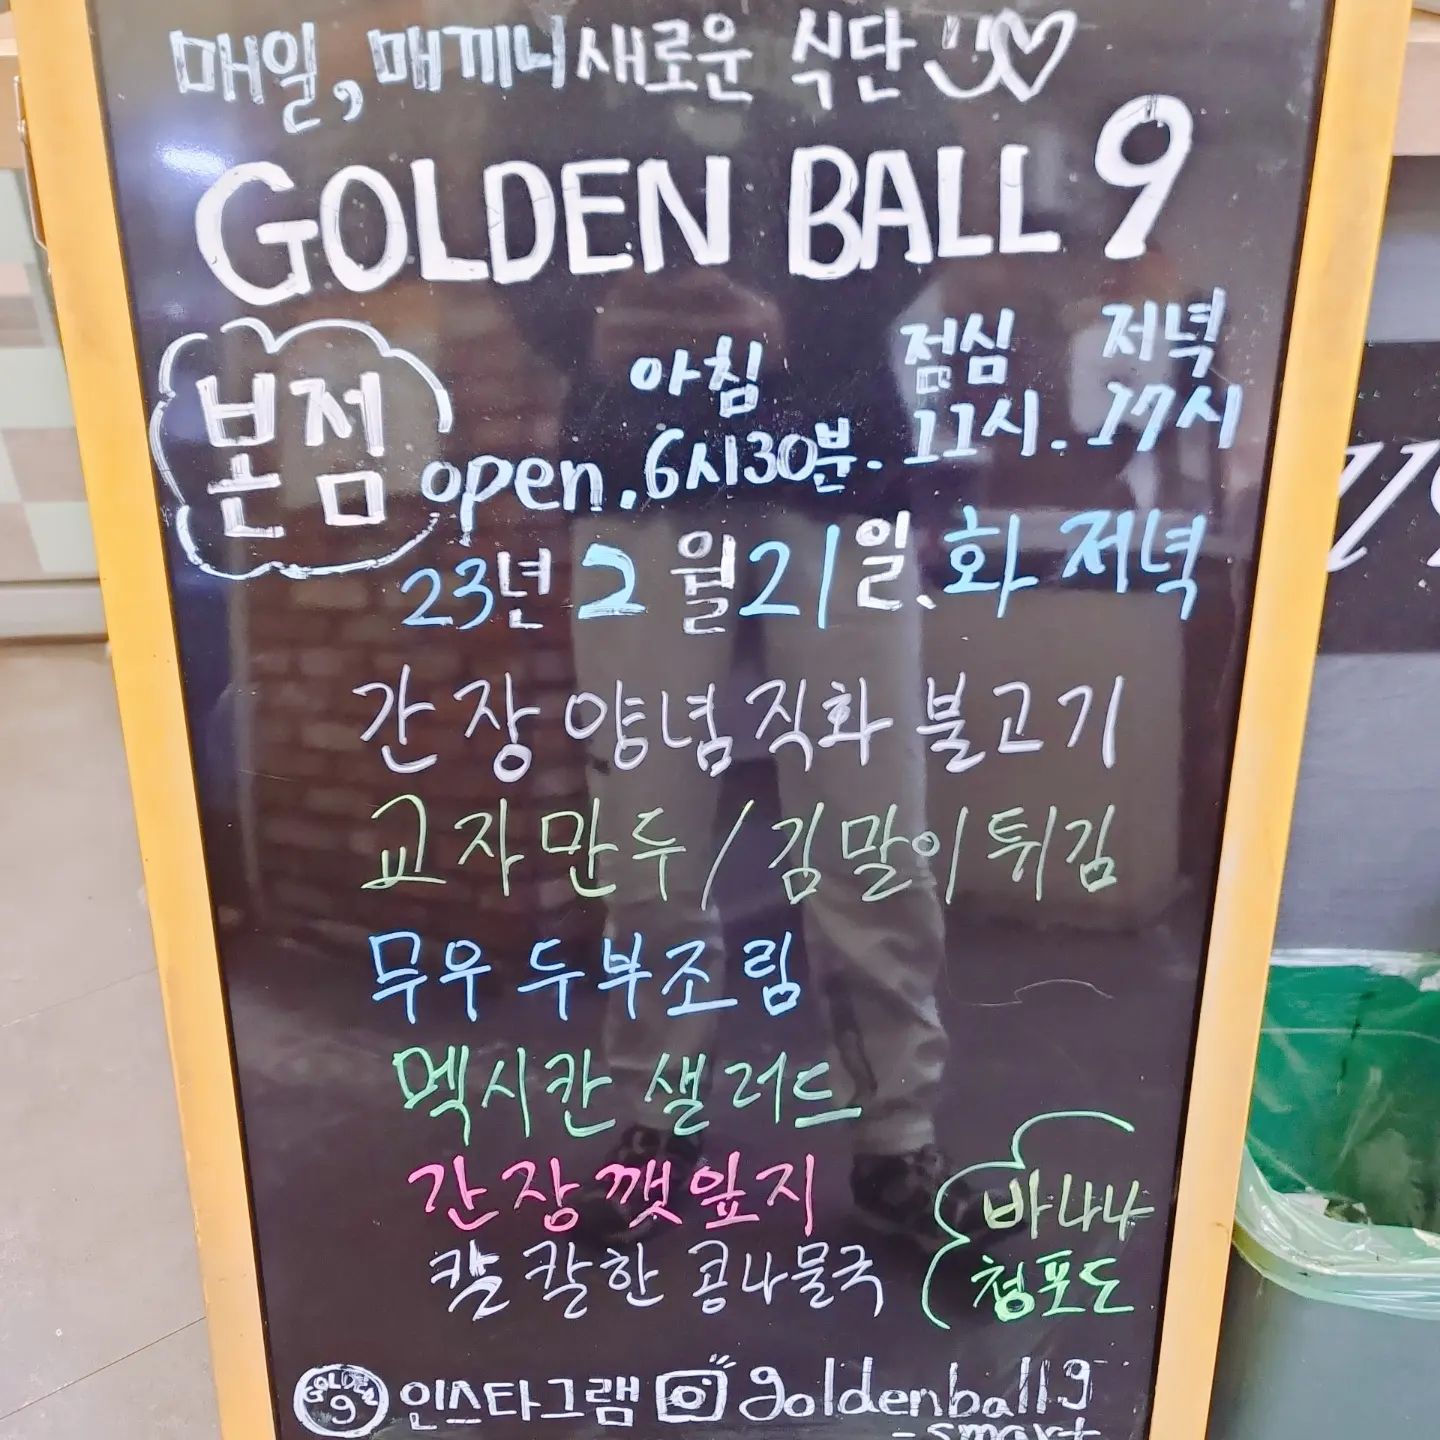 매일, 매끼니 새로운 식단
GOLDEN BALL 9
본점
아침 점심 저녁
open. 6시30분. 11시. 17시
23년 2월 21일. 화 저녁
간장양념직화 불고기
교자만두 / 김말이튀김
무우 두부조림
멕시칸 샐러드
간장깻잎지
칼칼한 콩나물국
바나나
청포도
GOLDEN 9 인스타그램 goldenball9
-smart